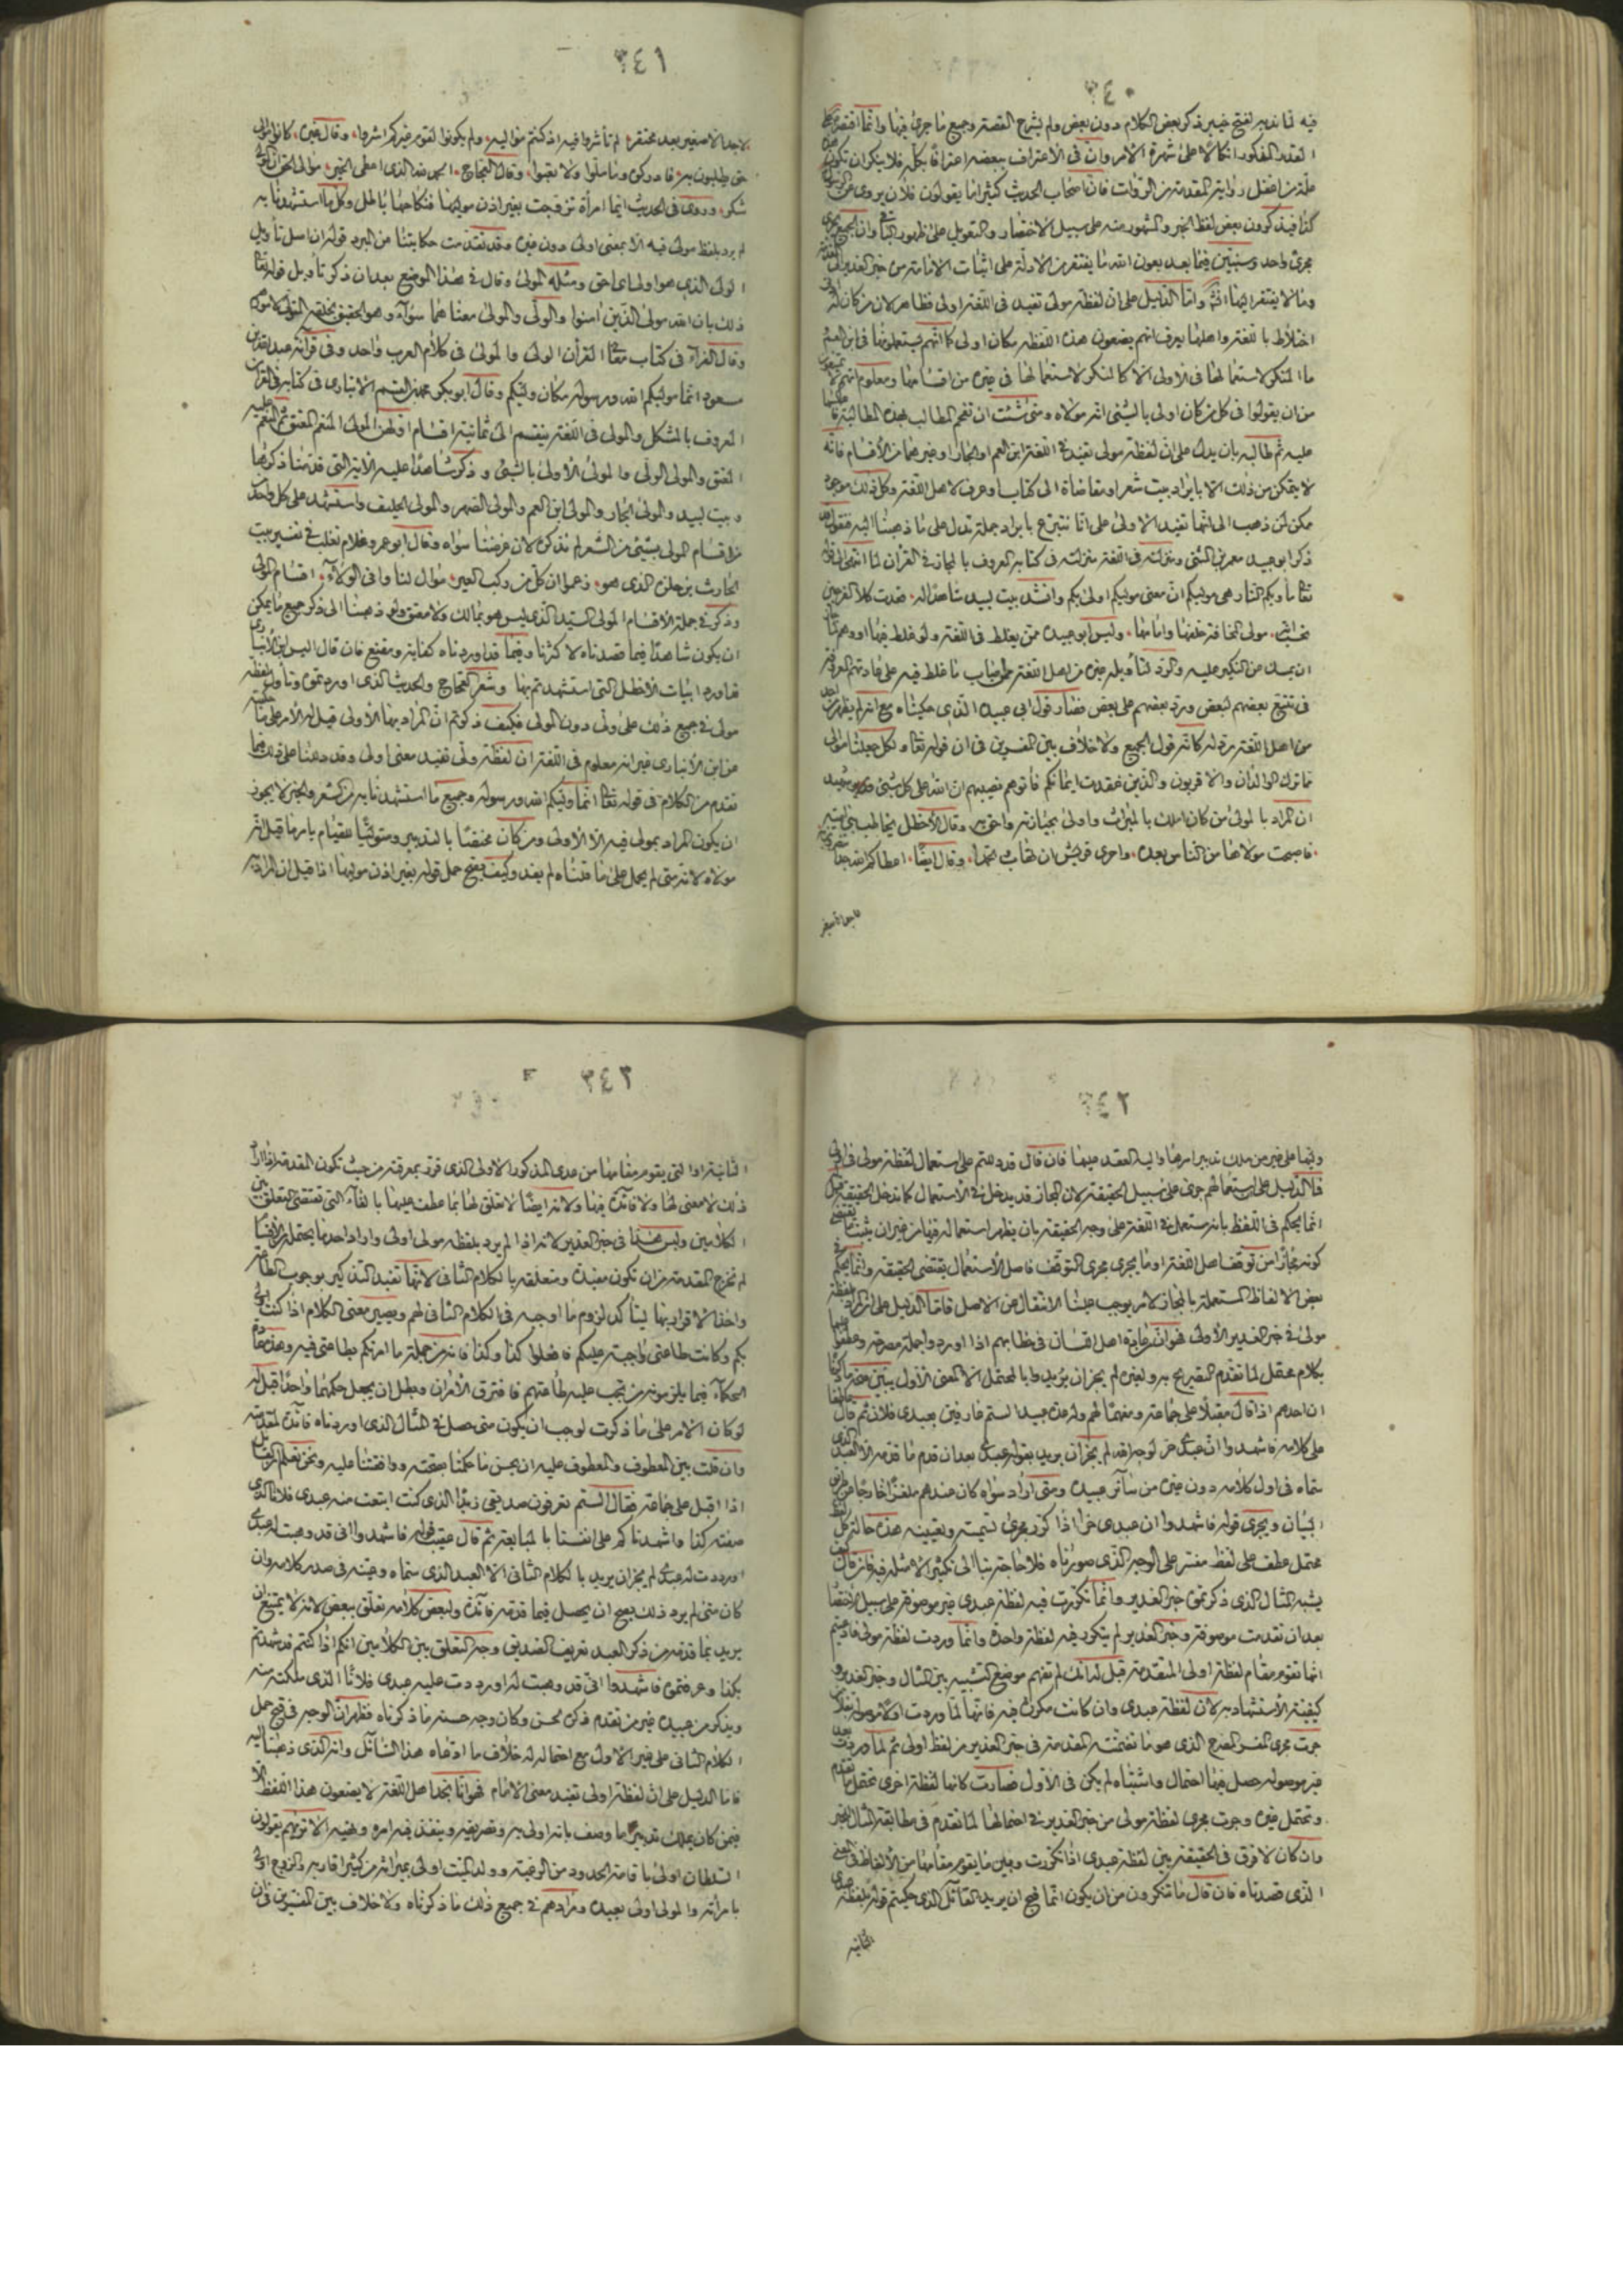 ٣٤٠
فيه لما ندبهم لفتح خيبر ذكر بعض الكلام دون بعض ولم يشرح القصة وجميع ما جرى فيها وانما اقتصروا على
القدر المذكور اتكالا على شهرة الامر وان في الاعتراف ببعضه اعترافا بكله فلا ينكر ان تكون
علة من اغفل رواية المقدمة من الرواة فان اصحاب الحديث كثيرا ما يقولون فلان يروى عن الرسول
كذا فيذكرون بعض لفظ الخبر والمشهور منه على سبيل الاختصار والتعويل على ظهور الباقى وان الجميع يجرى
مجرى واحد وسنبين فيما بعد بعون الله ما يفتقر من الادلة على اثبات الامامة من خبر الغدير الى المقدمة
وما لا يفتقر اليها انشا واما الدليل على ان لفظة مولى تفيد في اللغة اولى فظاهر لان من كان له ادنى
اختلاط باللغة واهلها يعرف انهم يضعون هذه اللفظة مكان اولى كما انهم يستعملونها في ابن العم
ما المنكر لاستعمالها في الاولى الا كالمنكر لاستعمالها في غيره من اقسامها ومعلوم انهم لا يمتنعون
من ان يقولوا في كل من كان اولى بالشئ انه مولاه ومتى شئت ان تفحم المطالب بهذه المطالبة
عليه ثم طالبه بان يدل على ان لفظة مولى تفيد في اللغة ابن العم او الجار او غيرهما من الاقسام فانه
لا يتمكن من ذلك الا بايراد بيت شعر او مقاضاة الى كتاب او عرف لاهل اللغة وكل ذلك موجود
ممكن لمن ذهب الى انها تفيد الاولى على انا نتبرع بايراد جملة تدل على ما ذهبنا اليه فنقول قد
ذكر ابو عبيد معمر بن المثنى ومنزلته في اللغة منزلته في كتابه المعروف بالمجاز في القرآن لما انتهى الى قوله
تعالى مأويكم النار هي موليكم ان معنى موليكم اولى بكم وانشد بيت لبيد شاهدا له فغدت كلا الفرجين
تحسب انه مولى المخافة خلفها وامامها وليس ابو عبيدة ممن يغلط في اللغة ولو غلط فيها او وهم لما جاز
ان يمسك عن النكير عليه والرد لتأويله غيره من اهل اللغة ممن اصاب ما غلط فيه على عادتهم المعروفة
في تتبع بعضهم لبعض ورد بعضهم على بعض فصار قول ابي عبيدة الذى حكيناه مع انه لم يظهر من احد
من اهل اللغة رد له كانه قول الجميع ولا خلاف بين المفسرين في ان قوله تعالى ولكل جعلنا موالى
مما ترك الوالدان والاقربون والذين عقدت ايمانكم فآتوهم نصيبهم ان الله على كل شئ شهيد
ان المراد بالموالى من كان املك بالميراث واولى بحيازته واحق به وقال الاخطل يخاطب بنى امية
فاصبحت مولاها من الناس بعده واحرى قريش ان تهاب وتحمدا وقال ايضا اعطاكم الله جدا تنصرون به
لا جد الا صغير
٣٤١
لا جد الا صغير بعد محتقر لم تأشروا فيه اذ كنتم مواليه ولو يكون لقوم غيركم اشروا وقال غيره كانوا موالى
حق يطلبون به فادركوه وما ملوا ولا تعبوا وقال العجاج الحمد لله الذى اعطى الخير موالى الحق ان المولى
شكر وروى في الحديث ايما امرأة تزوجت بغير اذن موليها فنكاحها باطل وكل ما استشهدنا به
لم يرد بلفظ مولى فيه الا معنى اولى دون غيره وقد تقدمت حكايتنا عن المبرد قوله ان اصل تأويل
الولى الذى هو اولى اى احق ومثله المولى وقال في هذا الموضع بعد ان ذكر تأويل قوله تعالى
ذلك بان الله مولى الذين امنوا والولى والمولى معناهما سواء وهو الحقيق بخلقه المتولى لامورهم
وقال الفراء في كتاب معاني القرآن الولى والمولى في كلام العرب واحد وفي قراءة عبد الله بن
مسعود انما موليكم الله ورسوله مكان وليكم وقال ابو بكر محمد بن القسم الانبارى في كتابه في القرآن
المعروف بالمشكل والمولى في اللغة ينقسم الى ثمانية اقسام اولهن المولى المنعم المعتق ثم المنعم عليه
المعتق والمولى الولى والمولى الاولى بالشئ وذكر شاهدا عليه الاية التى قدمنا ذكرها
وبيت لبيد والمولى الجار والمولى ابن العم والمولى الصهر والمولى الحليف واستشهد على كل واحد
من اقسام المولى بشئ من الشعر لم نذكره لان غرضنا سواه وقال ابو عمرو غلام ثعلب في تفسير بيت
الحارث بن حلزة الذى هو زعموا ان كل من ركب العير موال لنا وانى الولاء اقسام المولى
وذكر في جملة الاقسام المولى السيد الذى ليس هو بمالك ولا معتق ولو ذهبنا الى ذكر جميع ما يمكن
ان يكون شاهدا فيما قصدناه لاكثرنا وفيما قد اوردناه كفاية ومقنع فان قال اليس ابن الانبارى
قد اورد ابيات الاخطل التى استشهدتم بها وشعر العجاج والحديث الذى اوردتموه وتأول لفظة
مولى في جميع ذلك على ولى دون اولى فكيف ذكرتم ان المراد بها الاولى قيل له الامر على ما حكيته
عن ابن الانبارى غير انه معلوم في اللغة ان لفظة ولى تفيد معنى اولى وقد دللنا على ذلك فيما
تقدم من الكلام في قوله تعالى انما وليكم الله ورسوله وجميع ما استشهدنا به من الشعر والخبر لا يجوز
ان يكون المراد بمولى فيه الا الاولى ومن كان مختصا بالتدبير ومتوليا للقيام بامر ما قيل انه
مولاه لانه متى لم يحمل على ما قلناه لم يفد وكيف يصح حمل قوله بغير اذن موليها اذا قيل ان المراد به
٣٤٢
وليها على غير من يملك تدبيرها واليه العقد عليها فان قال قد دللتم على استعمال لفظة مولى في اولى
فما الدليل على ان استعمالهم جرى على سبيل الحقيقة لان المجاز قد يدخل في الاستعمال كما تدخل الحقيقة قيل
انما يحكم في اللفظ بانه مستعمل في اللغة على وجه الحقيقة بان يظهر استعماله فيها من غير ان يثبت ما يقتضى
كونه مجازا من توقيف اهل اللغة او ما يجرى مجرى التوقيف فاصل الاستعمال يقتضى الحقيقة وانما يحكم في
بعض الالفاظ المستعملة بالمجاز لامر يوجب علينا الانتقال عن الاصل فاما الدليل على ان المراد بلفظة
مولى في خبر الغدير الاولى فهو ان من عادة اهل اللسان في خطابهم اذا اوردوا جملة مصرحة وعطفوا عليها
بكلام محتمل لما تقدم التصريح به ولغيره لم يجز ان يريدوا بالمحتمل الا المعنى الاول يبين صحة ما ذكرناه
ان احدهم اذا قال مقبلا على جماعة ومفهما لهم وله عدة عبيد الستم عارفين بعبدى فلان ثم قال عاطفا
على كلامه فاشهدوا ان عبدى حر لوجه الله لم يجز ان يريد بقوله عبدى بعد ان قدم ما قدمه الا العبد الذى
سماه في اول كلامه دون غيره من سائر عبيده ومتى اراد سواه كان عندهم ملغزا خارجا عن طريق
البيان ويجرى قوله فاشهدوا ان عبدى حر اذا كرر مجرى تسميته وتعيينه هذه حالة كل لفظ
محتمل عطف على لفظ مفسر على الوجه الذى صورناه فلا حاجة بنا الى تكثير الامثلة فيه فان قال كيف
يشبه المثال الذى ذكرتموه خبر الغدير وانما تكررت فيه لفظة عبدى غير موصوفة على سبيل الاختصار
بعد ان تقدمت موصوفة وخبر الغدير لم يتكرر فيه لفظة واحدة وانما وردت لفظة مولى فادعيتم
انها تقوم مقام لفظة اولى المتقدمة قيل له انك لم تفهم موضع التشبيه بين المثال وخبر الغدير و
كيفية الاستشهاد به لان لفظة عبدى وان كانت مكررة فيه فانها لما وردت اولا موصوفة بفلان
جرت مجرى المفسر المصرح الذى هو ما تضمنته المقدمة في خبر الغدير من لفظ اولى ثم لما وردت بعد
غير موصوله حصل فيها احتمال واشتباه لم يكن في الاول فصارت كانها لفظة اخرى تحتمل ما تقدم
وتحتمل غيره وجرت مجرى لفظة مولى من خبر الغدير في احتمالها لما تقدم في مطابقة المثال للخبر
وان كان لا فرق في الحقيقة بين لفظة عبدى اذا تكررت وبين ما يقوم مقامها من الالفاظ في المعنى
الذى قصدناه فان قال ما تنكرون من ان يكون انما قبح ان يريد القائل الذى حكيتم قوله بلفظة عبدى
الثانيه
٣٤٣
الثانية او التى يقوم مقامها من عدى المذكور الاولى الذى قرر بمعرفته من حيث تكون المقدمة اذا اراد
ذلك لا معنى لها ولا فائدة فيها ولانه ايضا لا تعلق لها بما عطف عليها بالفاء التى تقتضى التعلق بين
الكلامين وليس هذا في خبر الغدير لانه اذا لم يرد بلفظة مولى اولى واراد احد ما يحتمله من الاقسام
لم تخرج المقدمة من ان تكون مفيدة ومتعلقة بالكلام الثانى لانها تفيد التذكير بوجوب الطاعة
واخذ الاقرار بها ليتأكد لزوم ما اوجبه في الكلام الثانى لهم ويصير معنى الكلام اذا كنت اولى
بكم وكانت طاعتى واجبة عليكم فافعلوا كذا وكذا فانه من جملة ما امرتكم بطاعتى فيه وهذه عادة
الحكماء فيما يلزمونه من يجب عليه طاعتهم فافترق الامران وبطل ان يجعل حكمهما واحدا قيل له
لو كان الامر على ما ذكرت لوجب ان يكون متى حصل في المثال الذى اوردناه فائدة لمقدمته
وان قلت بين المعطوف والمعطوف عليه ان يحسن ما حكمنا بقبحه ووافقتنا عليه ونحن نعلم ان القائل
اذا اقبل على جماعة فقال الستم تعرفون صديقى زيدا الذى كنت ابتعت منه عبدى فلانا الذى
صفته كذا واشهدناكم على انفسنا بالمبايعة ثم قال عقيب قوله فاشهدوا انى قد وهبت له عبدى
او رددت له عبدى لم يجز ان يريد بالكلام الثانى الا العبد الذى سماه وعينه في صدر كلامه وان
كان متى لم يرد ذلك يصح ان يحصل فيما قدمه فائدة ولبعض كلامه تعلق ببعض لانه لا يمتنع ان
يريد بما قدمه من ذكر العبد تعريف الصديق وجه التعلق بين الكلامين انكم اذا كنتم قد شهدتم
بكذا وعرفتموه فاشهدوا انى قد وهبت له او رددت عليه عبدى فلانا الذى ملكته منه
ويذكر من عبيده غير من تقدم ذكره لحسن وكان وجه حسنه ما ذكرناه فظهر ان الوجه في قبح حمل
الكلام الثانى على غير الاول مع احتماله له خلاف ما ادعاه هذا السائل وانه الذى ذهبنا اليه
فاما الدليل على ان لفظة اولى تفيد معنى الامام فهو انا نجد اهل اللغة لا يضعون هذا اللفظ الا
فيمن كان يملك تدبير ما وصف بانه اولى به وتصريفه وينفذ فيه امره ونهيه الا تريهم يقولون
السلطان اولى باقامة الحدود من الرعية وولد الميت اولى بميراثه من كثير اقاربه والزوج اولى
بامرأته والمولى اولى بعبده ومرادهم في جميع ذلك ما ذكرناه ولا خلاف بين المفسرين في ان